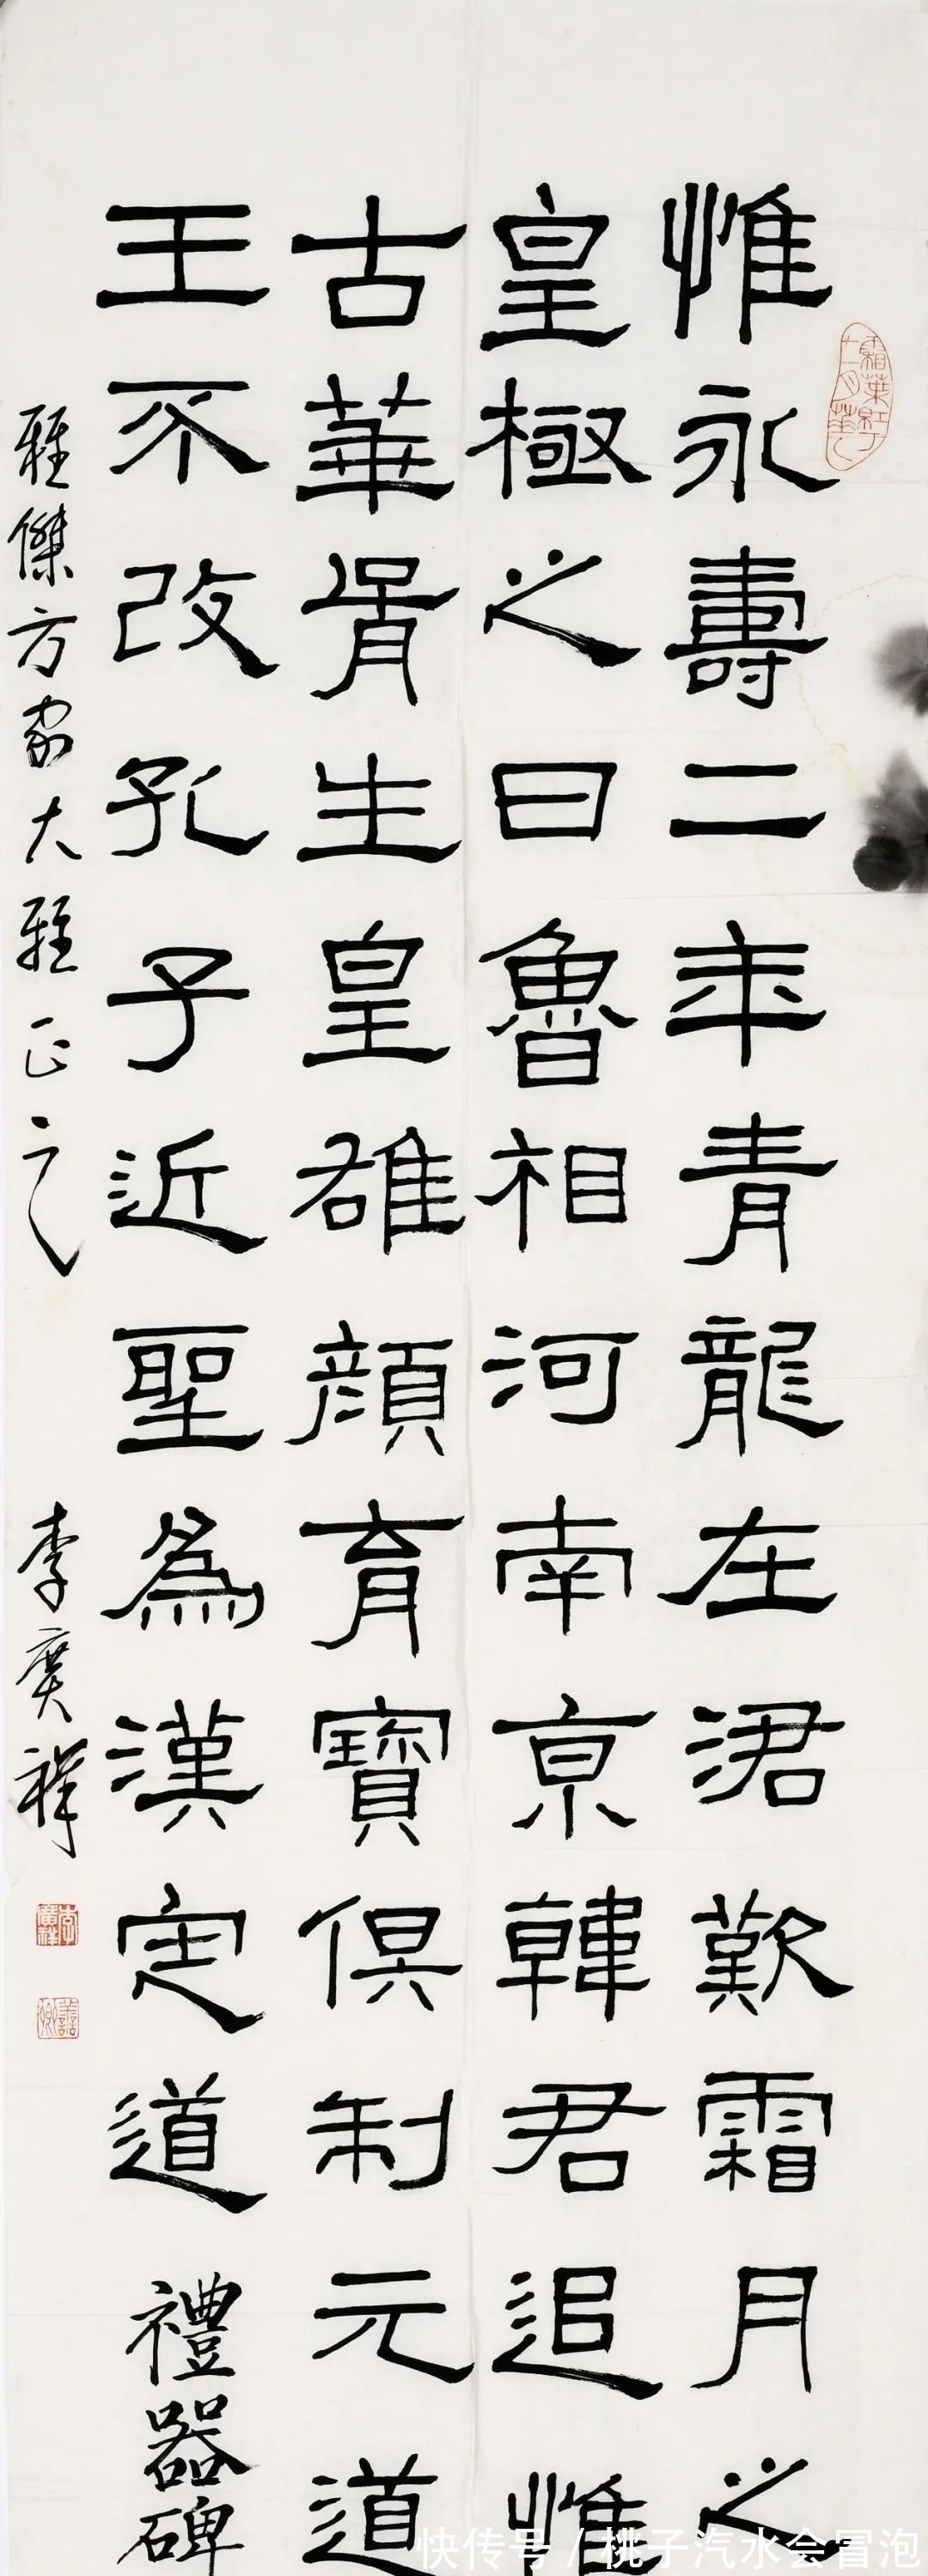 惟永壽二年青龍在涒歎霜月之
皇極之日魯相河南京韓君追惟
古華胥生皇雄顏育寶俱制元道
王不改孔子近聖為漢定道
禮器碑
雅傑方家大雅正之
李廣祥
李廣祥
快传号 / 桃子汽水会冒泡